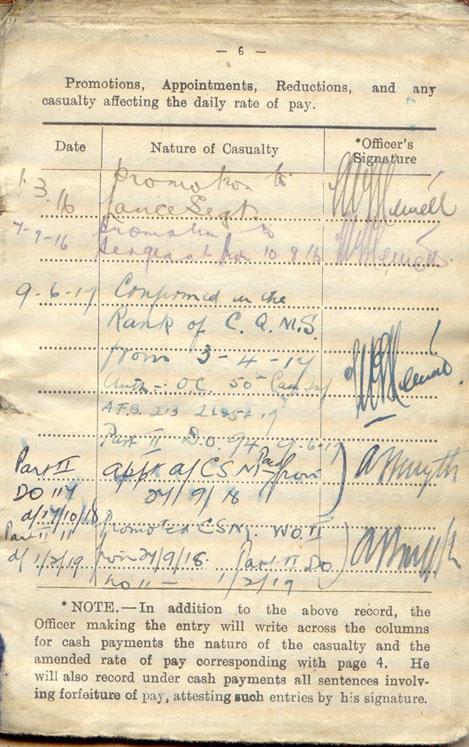 — 6 —
Promotions, Appointments, Reductions, and any
casualty affecting the daily rate of pay.
Date Nature of Casualty *Officer's Signature
1.3.16 promotion to
Lance Segt.
7-9-16 promotion to
Sergeant from 10 8 16
9-6-17 Confirmed in the
Rank of C. Q. M. S.
from 3-4-17
Auth - O.C. 50
A.F.B. 213
Part II D.O. 94 6-17
Part II appt a/ CSM Paid from
DO 117 27/9/18
d/17/10/18 Promoted CSM. WO.II
Part II 11 from 27/9/18. Part II DO
d/ 1/2/19 no 11 - 1/2/19
* NOTE.—In addition to the above record, the
Officer making the entry will write across the columns
for cash payments the nature of the casualty and the
amended rate of pay corresponding with page 4. He
will also record under cash payments all sentences involv-
ing forfeiture of pay, attesting such entries by his signature.